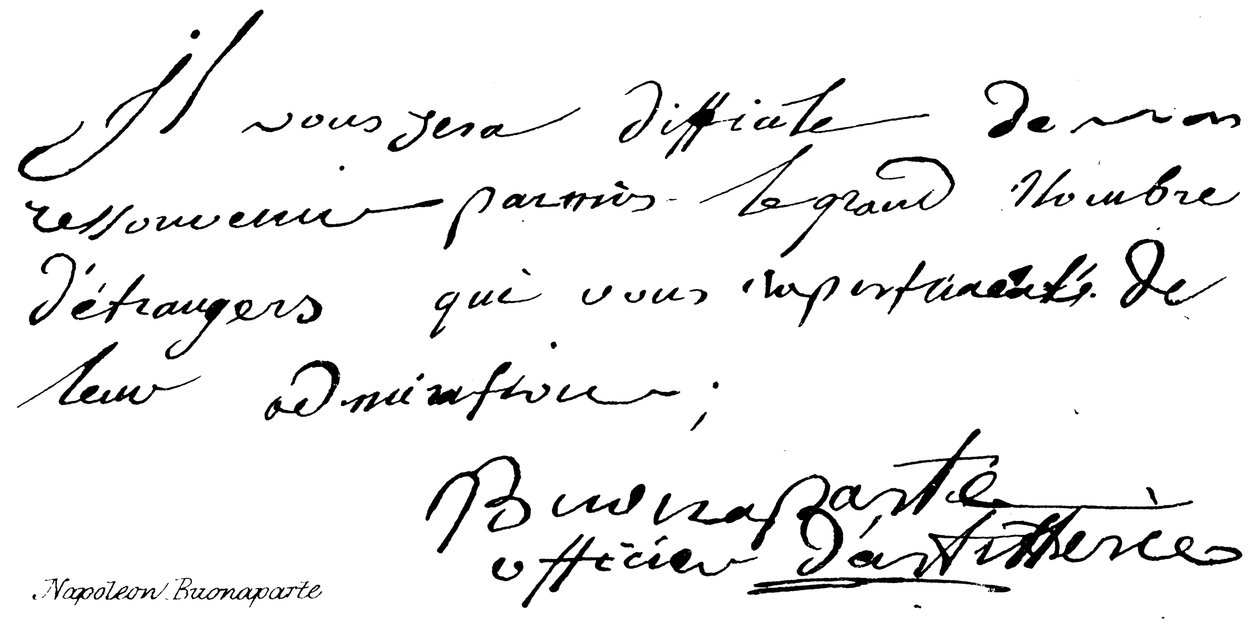 Il vous sera difficile de vous
ressouvenir parmis le grand Nombre
d'étrangers qui vous de
leur admiration ;
Buonaparte
officier d'artillerie
Napoleon Buonaparte